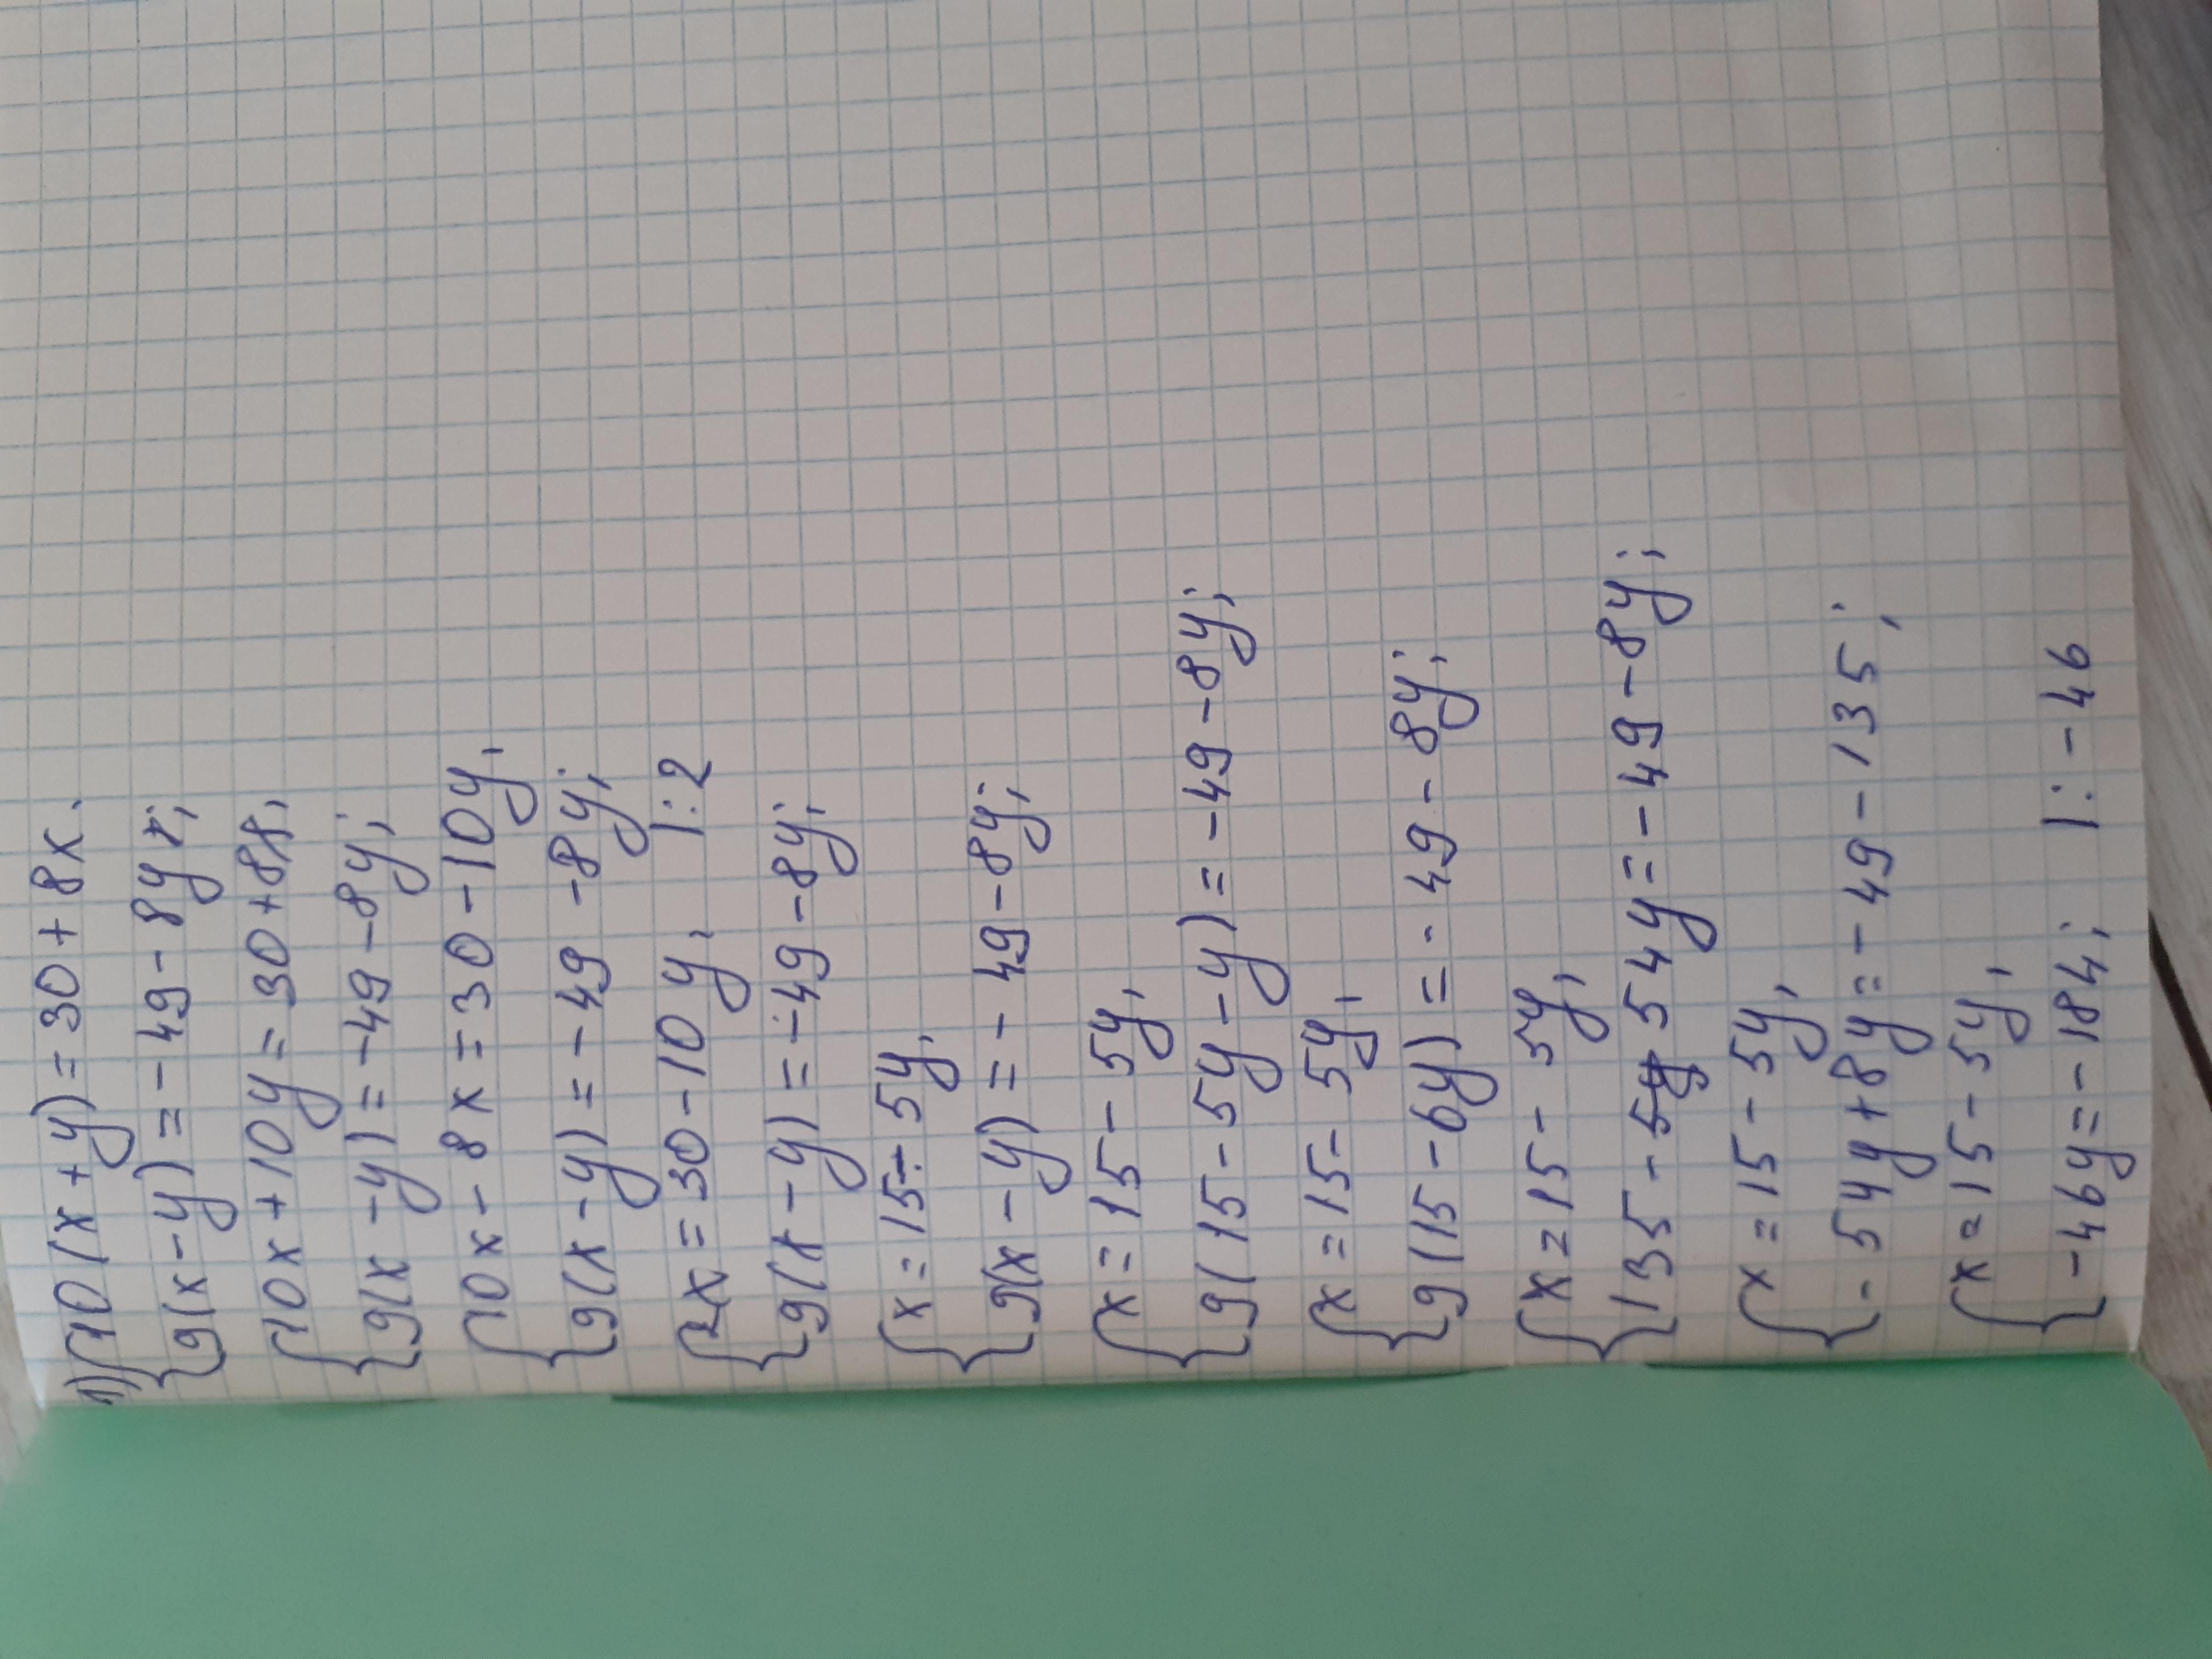 1) { 10(x+y)=30+8x.
9(x-y)=-49-8y;
{ 10x+10y=30+8x,
9(x-y)=-49-8y;
{ 10x-8x=30-10y,
9(x-y)=-49-8y;
{ 2x=30-10y, |:2
9(x-y)=-49-8y;
{ x=15-5y,
9(x-y)=-49-8y;
{ x=15-5y,
9(15-5y-y)=-49-8y;
{ x=15-5y,
9(15-6y)=-49-8y;
{ x=15-5y,
135-54y=-49-8y;
{ x=15-5y,
-54y+8y=-49-135;
{ x=15-5y,
-46y=-184; |:-46